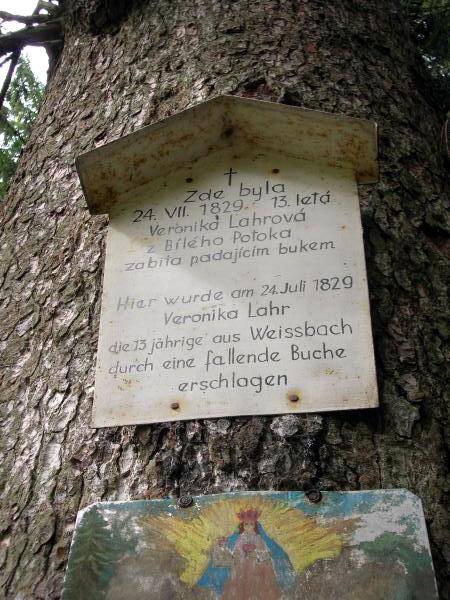 Zde byla
24. VII. 1829 - 13. letá
Veronika Lahrová
z Bílého Potoka
zabita padajícím bukem
Hier wurde am 24. Juli 1829
Veronika Lahr
die 13 jährige aus Weissbach
durch eine fallende Buche
erschlagen